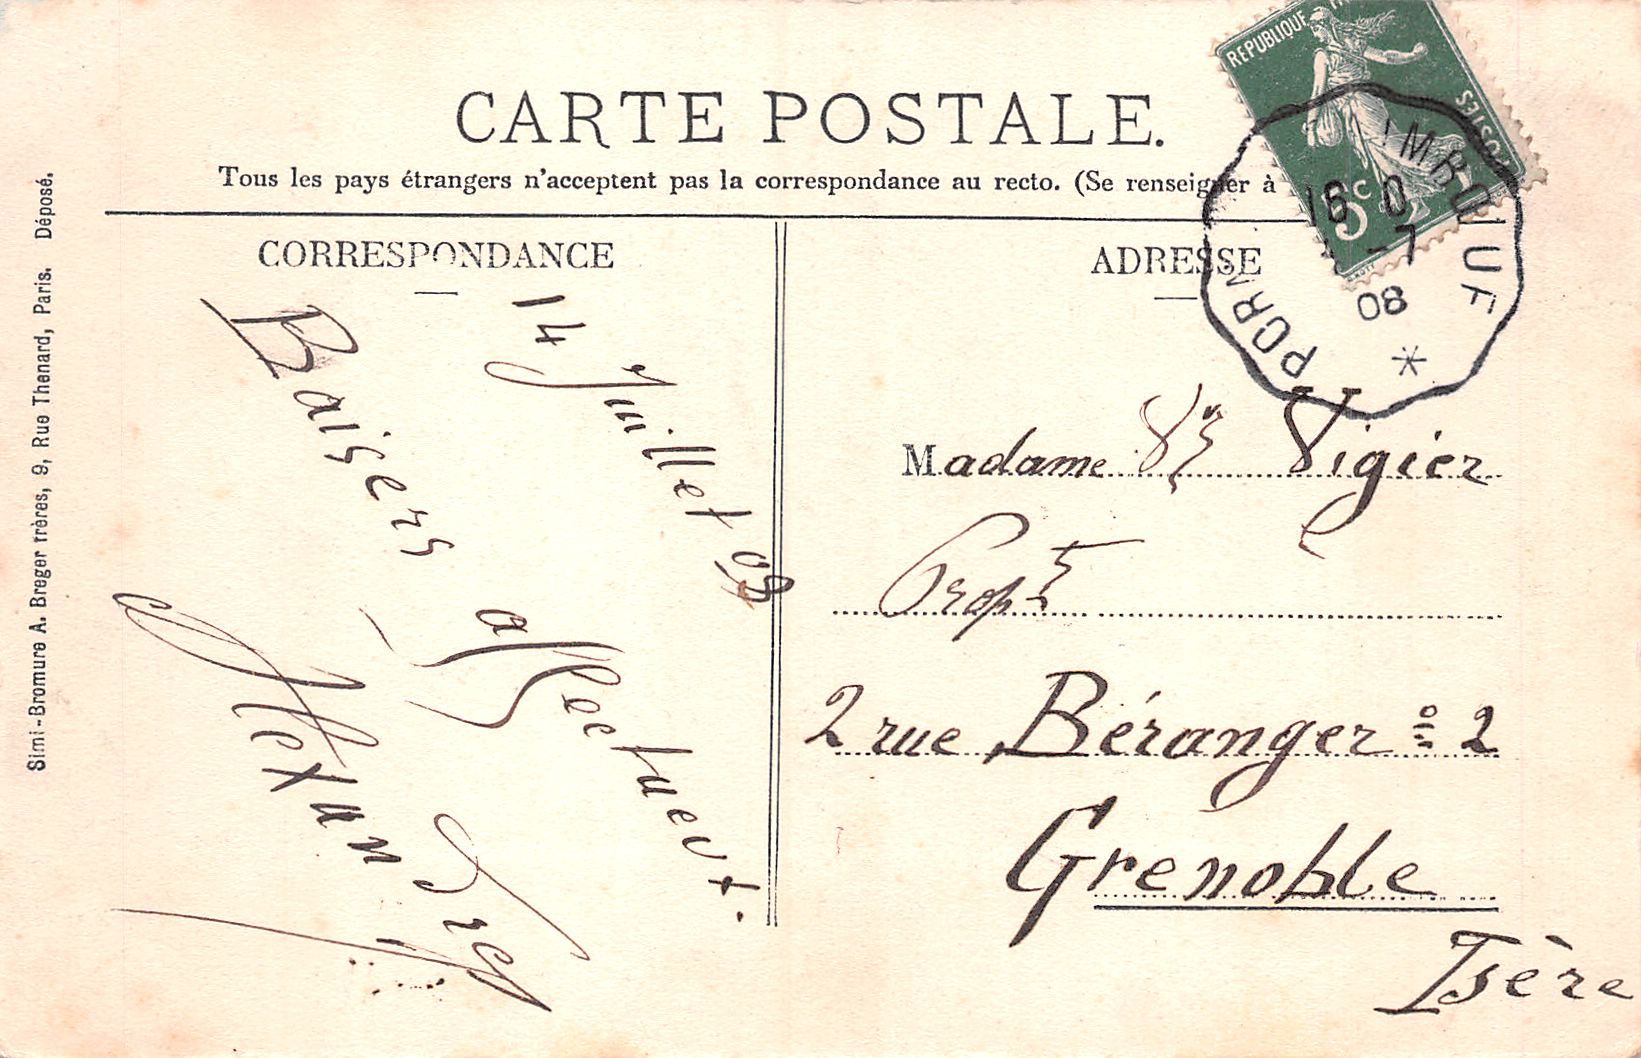 CARTE POSTALE.
Tous les pays étrangers n'acceptent pas la correspondance au recto. (Se renseigner à
CORRESPONDANCE
ADRESSE
Simi-Bromure A. Breger frères, 9, Rue Thenard, Paris. Déposé.
REPUBLIQUE
POSTES
5c
PORN
IMBOEUF
16
-7
08
*
14 Juillet 08
Baisers affectueux.
Alexandre
Madame Vve Vigier
Propre
2 rue Béranger = 2
Grenoble
Isère